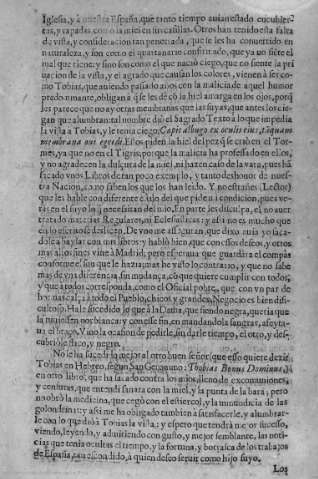 Iglesia, y à nuestra España, que tanto tiempo auian estado encubier-
tas, y tapadas con la miel en sus casillas. Otros han tenido esta falta
de vista, y consideracion tan penetrada, que se les ha conuertido en
naturaleza, y son como el quartanario confirmado, que ya no siete el
mal que tiene; y sino son como el que naciò ciego, que no siente la pri
uacion de la vista, y el agrado que causan los colores, vienen à ser co-
mo Tobias, que auiendo passado años con la malicia de aquel humor
predominante, obligan à que se les dè con la hiel amarga en los ojos, porq̃
les parece que no ay otras membranas que las suyas, que antes los cie-
gan que alumbran: tal nombre dà el Sagrado Texto à lo que impedia
la vista à Tobias, y le tenia ciego: Cœpit albugo ex oculis eius, quasi
membrana oui egredi. Estos piden la hiel del pez que se criò en el Tor-
mes, ya que no en el Tigris, porque la malicia ha professado en ellos,
y no agradecen la dulçura de la miel, ni la traen casa de la vara, pues hã
sacado vnos Libros de tan poco exemplo, y tanto deshonor de nues-
tra Nacion, como saben los que los han leido. Y no estrañes (Lector)
que les hable con diferente estilo del que piden a condicion, pues ve-
ràs en el suyo lo q̃ necessitan del mio. En parte les disculpa, el no auer
tratado materias Regulares, ni Eclesiasticas; y assi no es mucho que
en lo
De vno me asseguran, que dixo auia yo saca-
dole à baylar con mis libros y hablò bien, que con essos deseos y otros
mas
vine à Madrid; pero esperaua que guardàra el compàs
conforme el son que le hazia, mas he visto lo contrario, y que no sabe
mas de vna diferencia, sin mudança, con que quiere cumplir con todos,
y que à todos corresponda, como el Oficial pobre, que con vn par de
hormas calça à todo el Pueblo, chicos y grandes, Negocio es bien difi-
cultoso. Hale sucedido lo que à la Dama, que siendo negra, queria que
la tuuiessen por blanca; y con esse fin, en mandandola sangrar, afeyta-
ua el braço. Vino la ocasion de pedirle, su darle tiempo, el otro, y des-
cubriose feo, y negro.
No le ha sucedido mejor al otro buen señor, que esso quiere dezir
Tobias en Hebreo, segun San Geronimo: Tobias Bonus Dominus,
en otro libro, que ha sacado contra los mios, lleno de excomuniones,
y censuras, que entendi sanara con la miel, y la punta de la vara; pero
no obrò la medicina, que cegò con el estiercol, y la inmundicia de las
golondrinas: y assi me ha obligado tambien à satisfacerle, y alumbrar-
le con lo que dexò Tobias la vista; y espero que tendrà mejor sucesso,
viendo, leyendo, y admitiendo con gusto, y mejor semblante, las noti-
cias que tenia ocultas el tiempo, y la fortuna, y botyasca de los trabajos
de España, tan escondida, à quien deseo seruir como hijo suyo.
Los